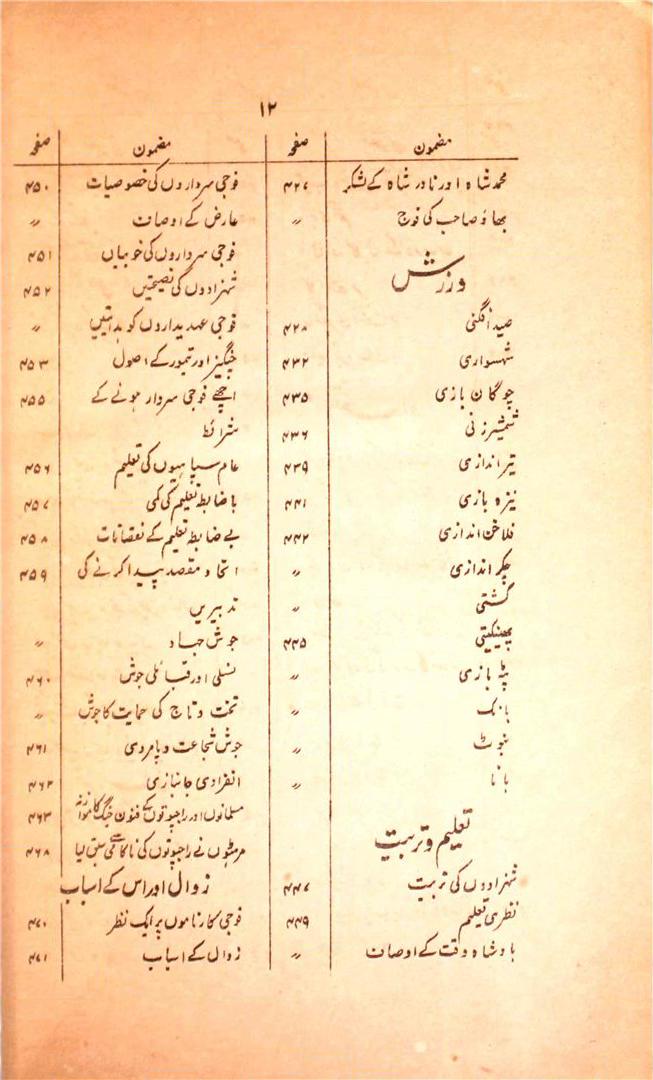 ۱۲
مضمون صفحہ
محمد شاہ اور نادر شاہ کے لشکر ۴۲۷
بھاؤ صاحب کی فوج 〃
ورزش
صید افگنی ۴۲۸
شہسواری ۴۳۲
چوگان بازی ۴۳۵
شمشیر زنی ۴۳۶
تیر اندازی ۴۳۹
نیزہ بازی ۴۴۱
فلاخن اندازی ۴۴۲
چکر اندازی 〃
کشتی 〃
پھینکیتی ۴۴۵
پٹہ بازی 〃
بانک 〃
بنوٹ 〃
بانا 〃
تعلیم و تربیت
شہزادوں کی تربیت ۴۴۷
نظری تعلیم ۴۴۹
بادشاہ وقت کے اوصاف 〃
مضمون صفحہ
فوجی سرداروں کی خصوصیات ۴۵۰
عارض کے اوصاف 〃
فوجی سرداروں کی خوبیاں ۴۵۱
شہزادوں کی نصیحتیں ۴۵۲
فوجی عہدیداروں کو ہدایتیں 〃
چنگیز اور تیمور کے اصول ۴۵۳
اچھے فوجی سردار ہونے کے ۴۵۵
شرائط
عام سپاہیوں کی تعلیم ۴۵۶
باضابطہ تعلیم کی کمی ۴۵۷
بے ضابطہ تعلیم کے نقصانات ۴۵۸
اتحاد مقصد پیدا کرنے کی ۴۵۹
تدبیریں
جوش جہاد 〃
نسلی اور قبائلی جوش ۴۶۰
تخت و تاج کی حمایت کا جوش 〃
جوش شجاعت و پامردی ۴۶۱
انفرادی جانبازی ۴۶۲
مسلمانوں اور راجپوتوں کے فنون جنگ کا موازنہ ۴۶۳
مرہٹوں نے راجپوتوں کی ناکامی سے سبق لیا ۴۶۸
زوال اور اس کے اسباب
فوجی کارناموں پر ایک نظر ۴۷۰
زوال کے اسباب ۴۷۱